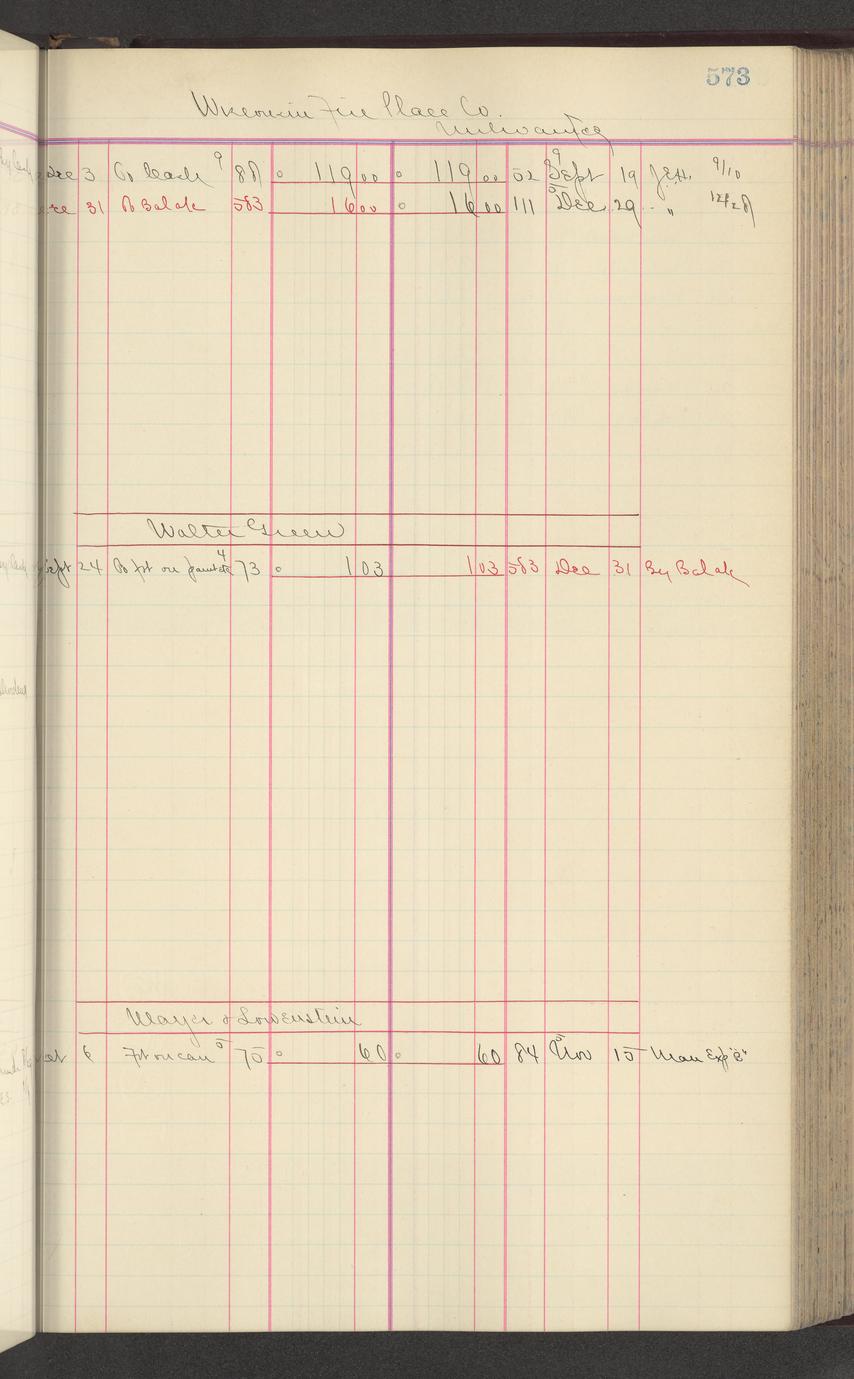 573
Wisconsin Fire Place Co.
Milwaukee
Dec 3 To Cash 9 88 119 00 119 00 52 9 Sept 19 J.E.H. 9/10
Dec 31 To Balce 583 16 00 16 00 111 5 Dec 29 " 12/28
Walter Green
Sept 24 To frt on 4 73 1 03 1 03 583 Dec 31 By Balce
Mayer & Lowenstein
Oct 6 Frt on can 5 75 60 60 84 5 Nov 15 Man Exp "E"